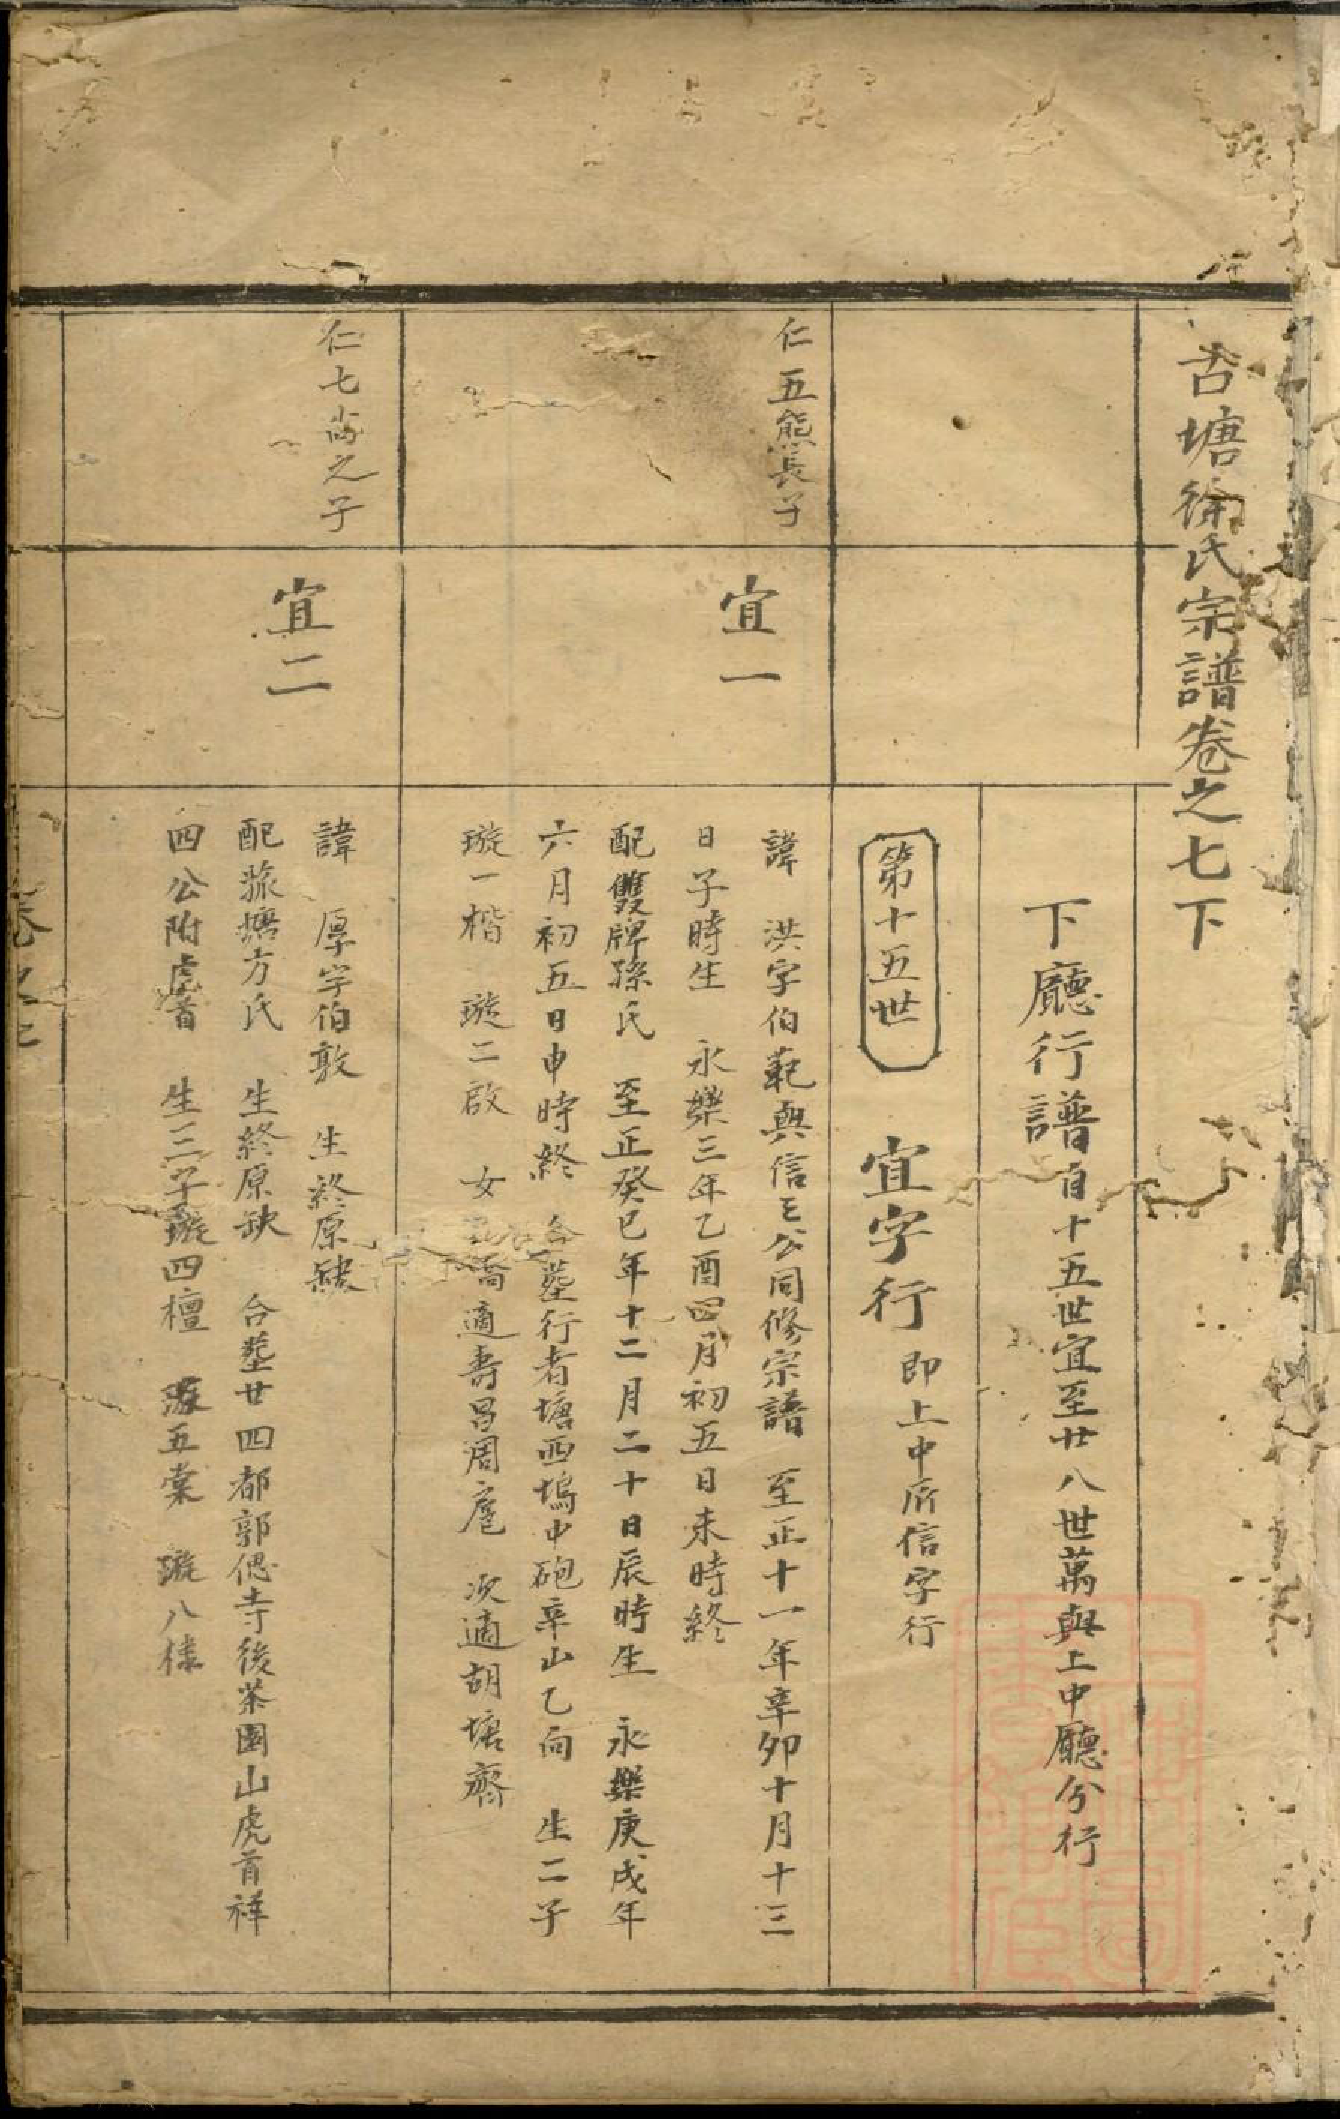 古塘徐氏宗譜卷之七下
下廳行譜自十五世宜至廿八世萬與上中廳分行
第十五世 宜字行 即上中所信字行
仁五熊長子
宜一
諱 洪字伯範與信三公同修宗譜 至正十一年辛卯十月十三
日子時生 永樂三年乙酉四月初五日未時終
配雙牌孫氏 至正癸巳年十二月二十日辰時生 永樂庚戌年
六月初五日申時終 合塟行者塘西塢中砲辛山乙向 生二子
璇一楷 璇二啟 女 適壽昌周 次適胡塘齊
仁七尚之子
宜二
諱 厚字伯敦 生終原缺
配 塘方氏 生終原缺 合塟廿四都郭偲寺後茶園山虎首祥
四公附處 生三子璇四檀 璇五棠 璇八様
卷之七